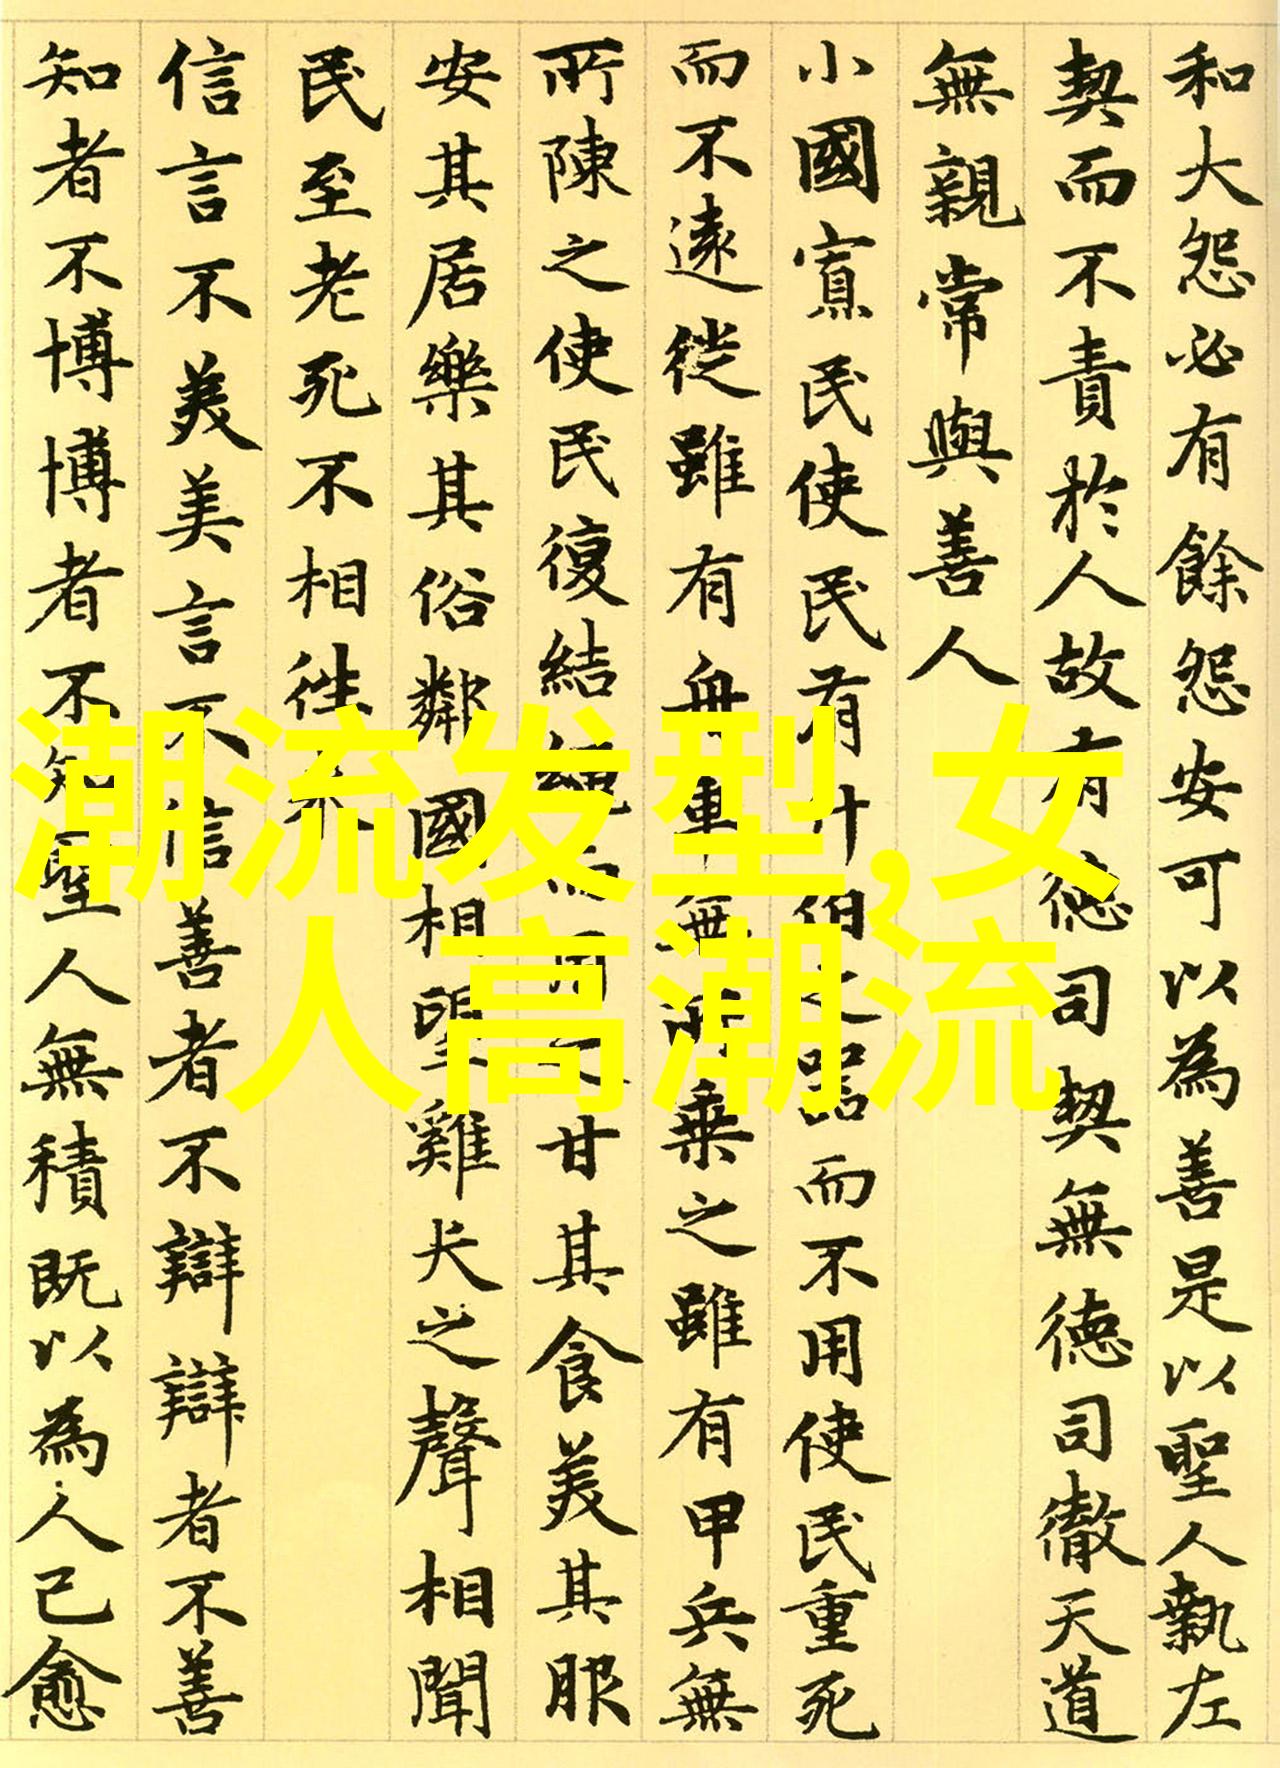 和大怨必有餘怨安可以為善是以聖人執左
契而不責於人故有德司契無德司徹天道
無親常與善人
小國寡民使民有什伯之器而不用使民重死
而不遠徙雖有舟車無所乗之雖有甲兵無
所陳之使民復結繩而用之甘其食美其服
安其居樂其俗鄰國相望雞犬之聲相聞
民至老死不相往来
信言不美美言不信善者不辯辯者不善
知者不博博者不知聖人無積既以為人己愈
潮流发型,女
人高潮流